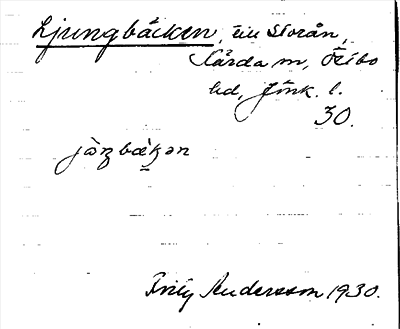 Ljungbäcken, till Storån,
Kärda sn, Östbo
hd, Jönk. l.
30.
jòŋbæ̀kən
Frity Andersson 1930.